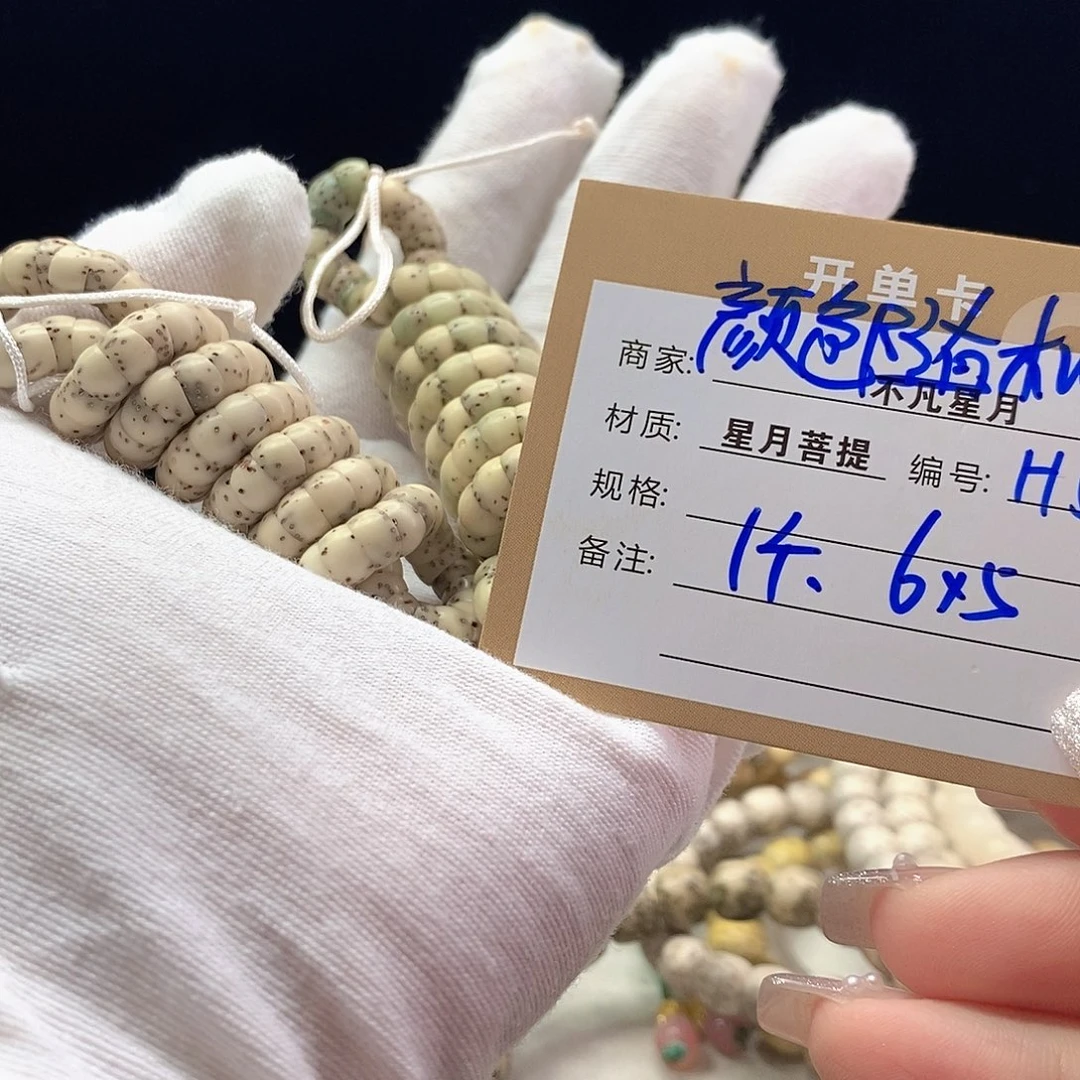 开单卡
颜色随机
商家: 不凡星月
材质: 星月菩提 编号: H
规格:
备注: 1千、6×5